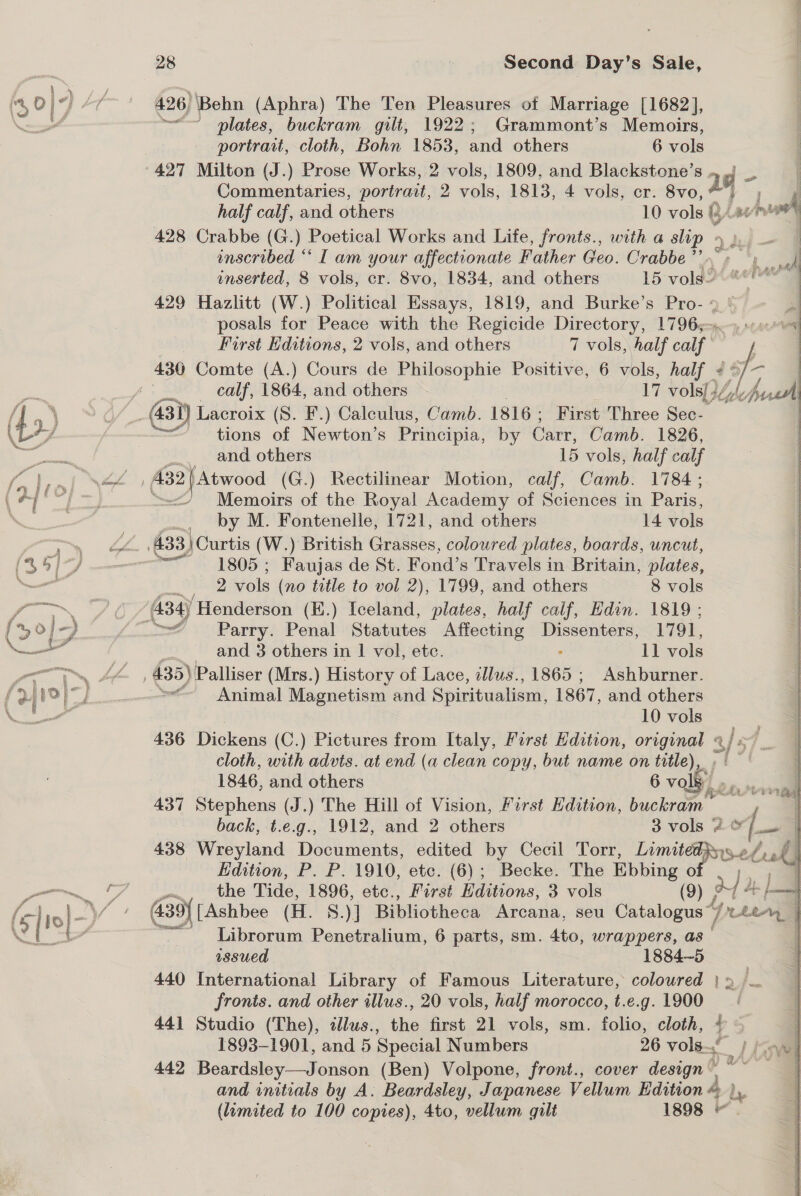 28 Second Day's Sale,
426 Behn (Aphra) The Ten Pleasures of Marriage [1682],
plates, buckram gilt, 1922; Grammont's Memoirs,
portrait, cloth, Bohn 1853, and others 6 vols
427 Milton (J.) Prose Works, 2 vols, 1809, and Blackstone's
Commentaries, portrait, 2 vols, 1813, 4 vols, cr. 8vo,
half calf, and others 10 vols
428 Crabbe (G.) Poetical Works and Life, fronts., with a slip
inscribed “ I am your affectionate Father Geo. Crabbe ”
inserted, 8 vols, cr. 8vo, 1834, and others 15 vols
429 Hazlitt (W.) Political Essays, 1819, and Burke's Pro-
posals for Peace with the Regicide Directory, 1796,
First Editions, 2 vols, and others 7 vols, half calf
430 Comte (A.) Cours de Philosophie Positive, 6 vols, half
calf, 1864, and others 17 vols
431 Lacroix (S. F.) Calculus, Camb. 1816; First Three Sec-
tions of Newton's Principia, by Carr, Camb. 1826,
and others 15 vols, half calf
432 Atwood (G.) Rectilinear Motion, calf, Camb. 1784;
Memoirs of the Royal Academy of Sciences in Paris,
by M. Fontenelle, 1721, and others 14 vols
433 Curtis (W.) British Grasses, coloured plates, boards, uncut,
1805; Faujas de St. Fond's Travels in Britain, plates,
2 vols (no title to vol 2), 1799, and others 8 vols
434 Henderson (E.) Iceland, plates, half calf, Edin. 1819;
Parry. Penal Statutes Affecting Dissenters, 1791,
and 3 others in 1 vol, etc. 11 vols
435 Palliser (Mrs.) History of Lace, illus., 1865; Ashburner.
Animal Magnetism and Spiritualism, 1867, and others
10 vols
436 Dickens (C.) Pictures from Italy, First Edition, original
cloth, with advts. at end (a clean copy, but name on title),
1846, and others 6 vols
437 Stephens (J.) The Hill of Vision, First Edition, buckram
back, t.e.g., 1912, and 2 others 3 vols
438 Wreyland Documents, edited by Cecil Torr, Limited
Edition, P. P. 1910, etc. (6); Becke. The Ebbing of
the Tide, 1896, etc., First Editions, 3 vols (9)
439 [Ashbee (H. S.)] Bibliotheca Arcana, seu Catalogus
Librorum Penetralium, 6 parts, sm. 4to, wrappers, as
issued 1884-5
440 International Library of Famous Literature, coloured
fronts. and other illus., 20 vols, half morocco, t.e.g. 1900
441 Studio (The), illus., the first 21 vols, sm. folio, cloth,
1893-1901, and 5 Special Numbers 26 vols
442 Beardsley—Jonson (Ben) Volpone, front., cover design
and initials by A. Beardsley, Japanese Vellum Edition
(limited to 100 copies), 4to, vellum gilt 1898